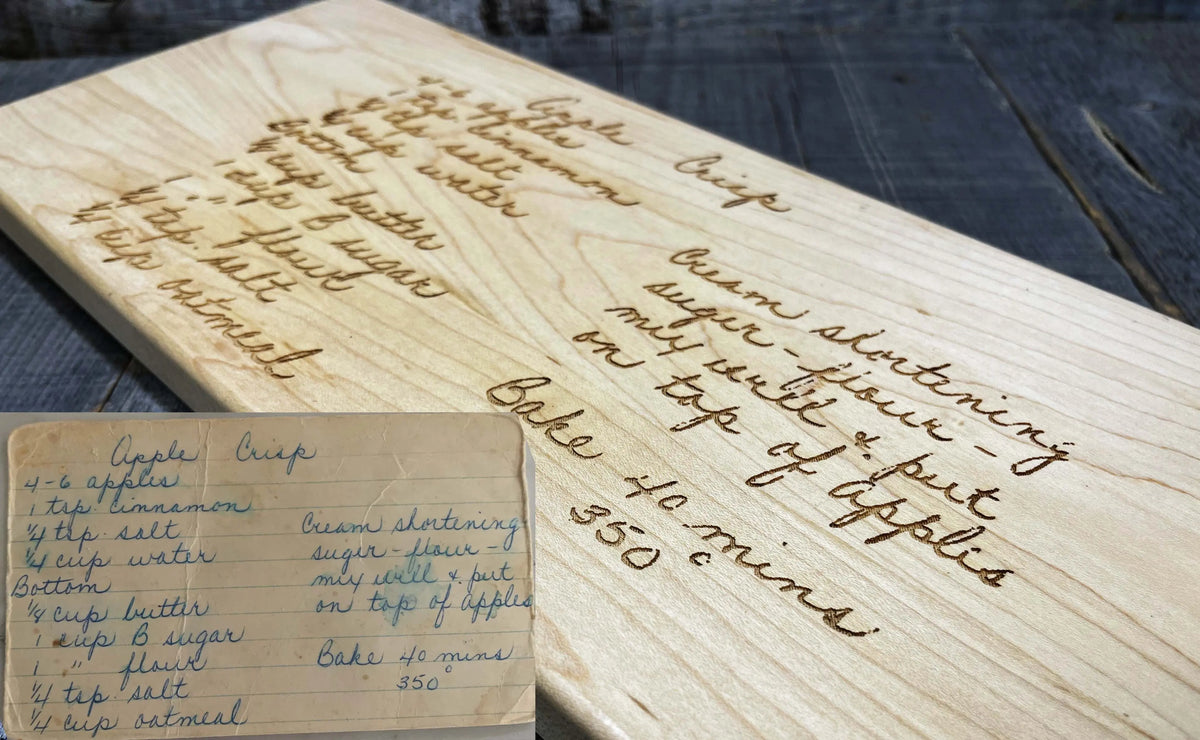 Apple Crisp
4-6 apples
1 tsp. cinnamon
1/4 tsp. salt
1/4 cup water
Bottom
1/8 cup butter
1 cup B sugar
1 " flour
1/4 tsp. salt
1/4 cup oatmeal
Cream shortening
suger - flour -
mix well & put
on top of apples
Bake 40 mins
350°
Apple Crisp
4-6 apples
1 tsp. cinnamon
1/4 tsp. salt
1/4 cup water
Bottom
1/8 cup butter
1 cup B sugar
1 " flour
1/4 tsp. salt
1/4 cup oatmeal
Cream shortening
suger - flour -
mix well & put
on top of apples
Bake 40 mins
350°